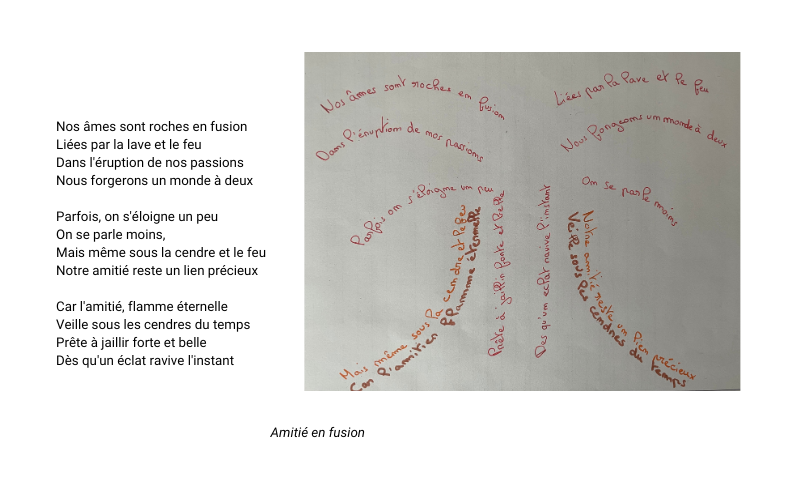 Nos âmes sont roches en fusion
Liées par la lave et le feu
Dans l'éruption de nos passions
Nous forgerons un monde à deux
Parfois, on s'éloigne un peu
On se parle moins,
Mais même sous la cendre et le feu
Notre amitié reste un lien précieux
Car l'amitié, flamme éternelle
Veille sous les cendres du temps
Prête à jaillir forte et belle
Dès qu'un éclat ravive l'instant
Nos âmes sont roches en fusion
Liées par la lave et le feu
Dans l'éruption de nos passions
Nous forgeons un monde à deux
Parfois on s'éloigne un peu
On se parle moins
Mais même sous la cendre et le feu
Car l'amitien fflamme éternelle
Prête à jaillir forte et belle
Des qu'un eclat ravive l'instant
Notre amitié reste un lien précieux
Veille sous les cendres du temps
Amitié en fusion